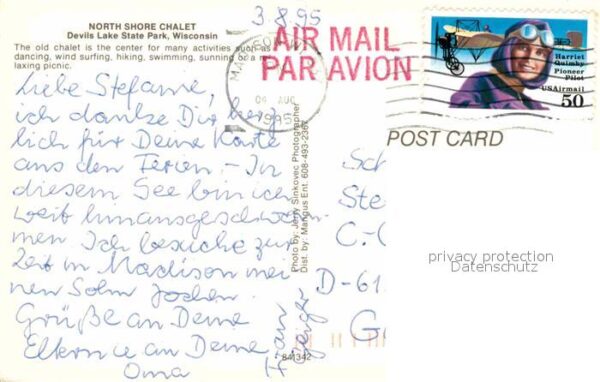 NORTH SHORE CHALET
Devils Lake State Park, Wisconsin
The old chalet is the center for many activities such as
dancing, wind surfing, hiking, swimming, sunning or a re-
laxing picnic.
3.8.95
AIR MAIL
PAR AVION
04 AUG
1995
Harriet
Quimby
Pioneer
Pilot
USAirmail
50
POST CARD
Liebe Stefanie,
ich danke Dir herz
lich für Deine Karte
aus den Ferien. – In
diesem See bin ich
weit hinausgeschwom-
men. Ich besuche zur
Zeit in Madison mei
nen Sohn Jochen.
Grüße an Deine
Eltern wie an Deine
Oma
Photo by: Jerry Sinkovec Photographer
Dist. by: Mangus Ent. 608-493-2367
841342
Ste
C-
D-61
G
privacy protection
Datenschutz